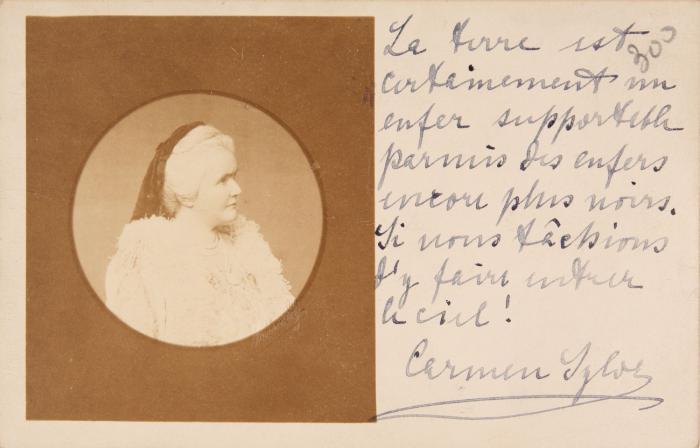 La terre est
300
certainement un
enfer supportable
parmis des enfers
encore plus noirs.
Si nous tâchions
d'y faire entrer
le ciel!
Carmen Sylva